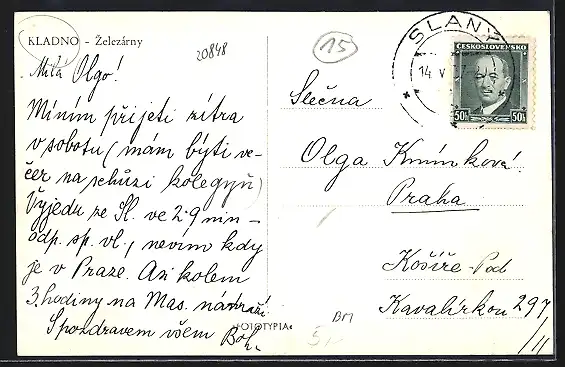 KLADNO – Železárny
20848
15
SLANÝ
14 V
ČESKOSLOVENSKO
50h 50h
Milá Olgo!
Míním přijeti zítra
v sobotu (mám býti ve-
čer na schůzi kolegyň)
Vyjedu ze Sl. ve 2·9 min
odp. sp. vl., nevím kdy
je v Praze. Asi kolem
3. hodiny na Mas. nádraží
S pozdravem všem
Slečna
Olga Kmínková
Praha
Košíře-Pod
Kavalírkou 297
/11
FOTOTYPIA
BM